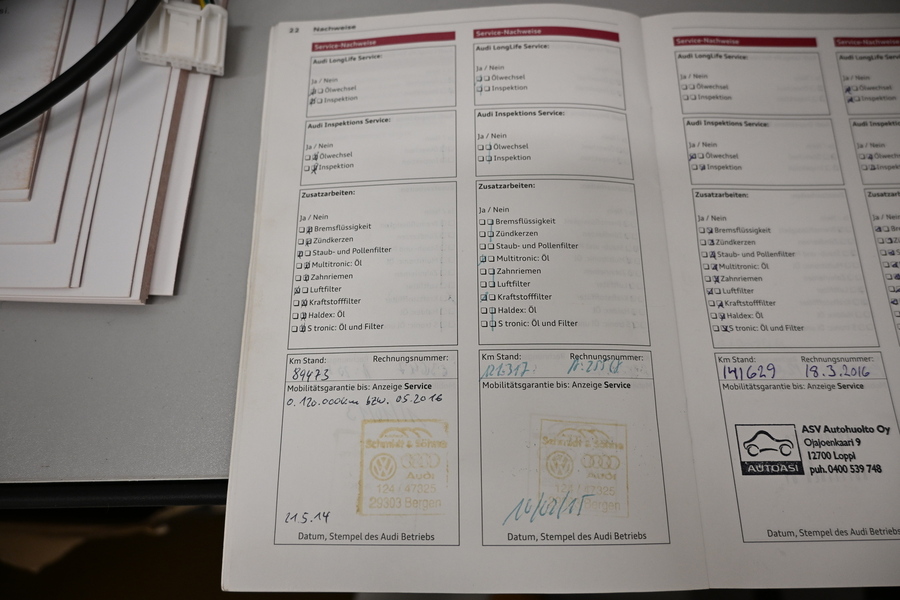 22 Nachweise
Service-Nachweise
Audi LongLife Service:
Ja / Nein
Ölwechsel
Inspektion
Audi Inspektions Service:
Ja / Nein
Ölwechsel
Inspektion
Zusatzarbeiten:
Ja / Nein
Bremsflüssigkeit
Zündkerzen
Staub- und Pollenfilter
Multitronic: Öl
Zahnriemen
Luftfilter
Kraftstofffilter
Haldex: Öl
S tronic: Öl und Filter
Km Stand: Rechnungsnummer:
89473
Mobilitätsgarantie bis: Anzeige Service
o. 120.000km bzw. 05.2016
Schmidt & Söhne
Audi
124 / 47025
29303 Bergen
21.5.14
Datum, Stempel des Audi Betriebs
Service-Nachweise
Audi LongLife Service:
Ja / Nein
Ölwechsel
Inspektion
Audi Inspektions Service:
Ja / Nein
Ölwechsel
Inspektion
Zusatzarbeiten:
Ja / Nein
Bremsflüssigkeit
Zündkerzen
Staub- und Pollenfilter
Multitronic: Öl
Zahnriemen
Luftfilter
Kraftstofffilter
Haldex: Öl
S tronic: Öl und Filter
Km Stand: Rechnungsnummer:
Mobilitätsgarantie bis: Anzeige Service
Schmidt & Söhne
Audi
Bergen
16/02/15
Datum, Stempel des Audi Betriebs
Service-Nachweise
Audi LongLife Service:
Ja / Nein
Ölwechsel
Inspektion
Audi Inspektions Service:
Ja / Nein
Ölwechsel
Inspektion
Zusatzarbeiten:
Ja / Nein
Bremsflüssigkeit
Zündkerzen
Staub- und Pollenfilter
Multitronic: Öl
Zahnriemen
Luftfilter
Kraftstofffilter
Haldex: Öl
S tronic: Öl und Filter
Km Stand: Rechnungsnummer:
141629 18.3.2016
Mobilitätsgarantie bis: Anzeige Service
AUTOASI
ASV Autohuolto Oy
Ojajoenkaari 9
12700 Loppi
puh. 0400 539 748
Datum, Stempel des Audi Betriebs
Service-Nachweise
Audi LongLife
Ja / Nein
Ölwechsel
Inspektion
Audi Inspektions
Ja / Nein
Ölwechsel
Ja / Nein